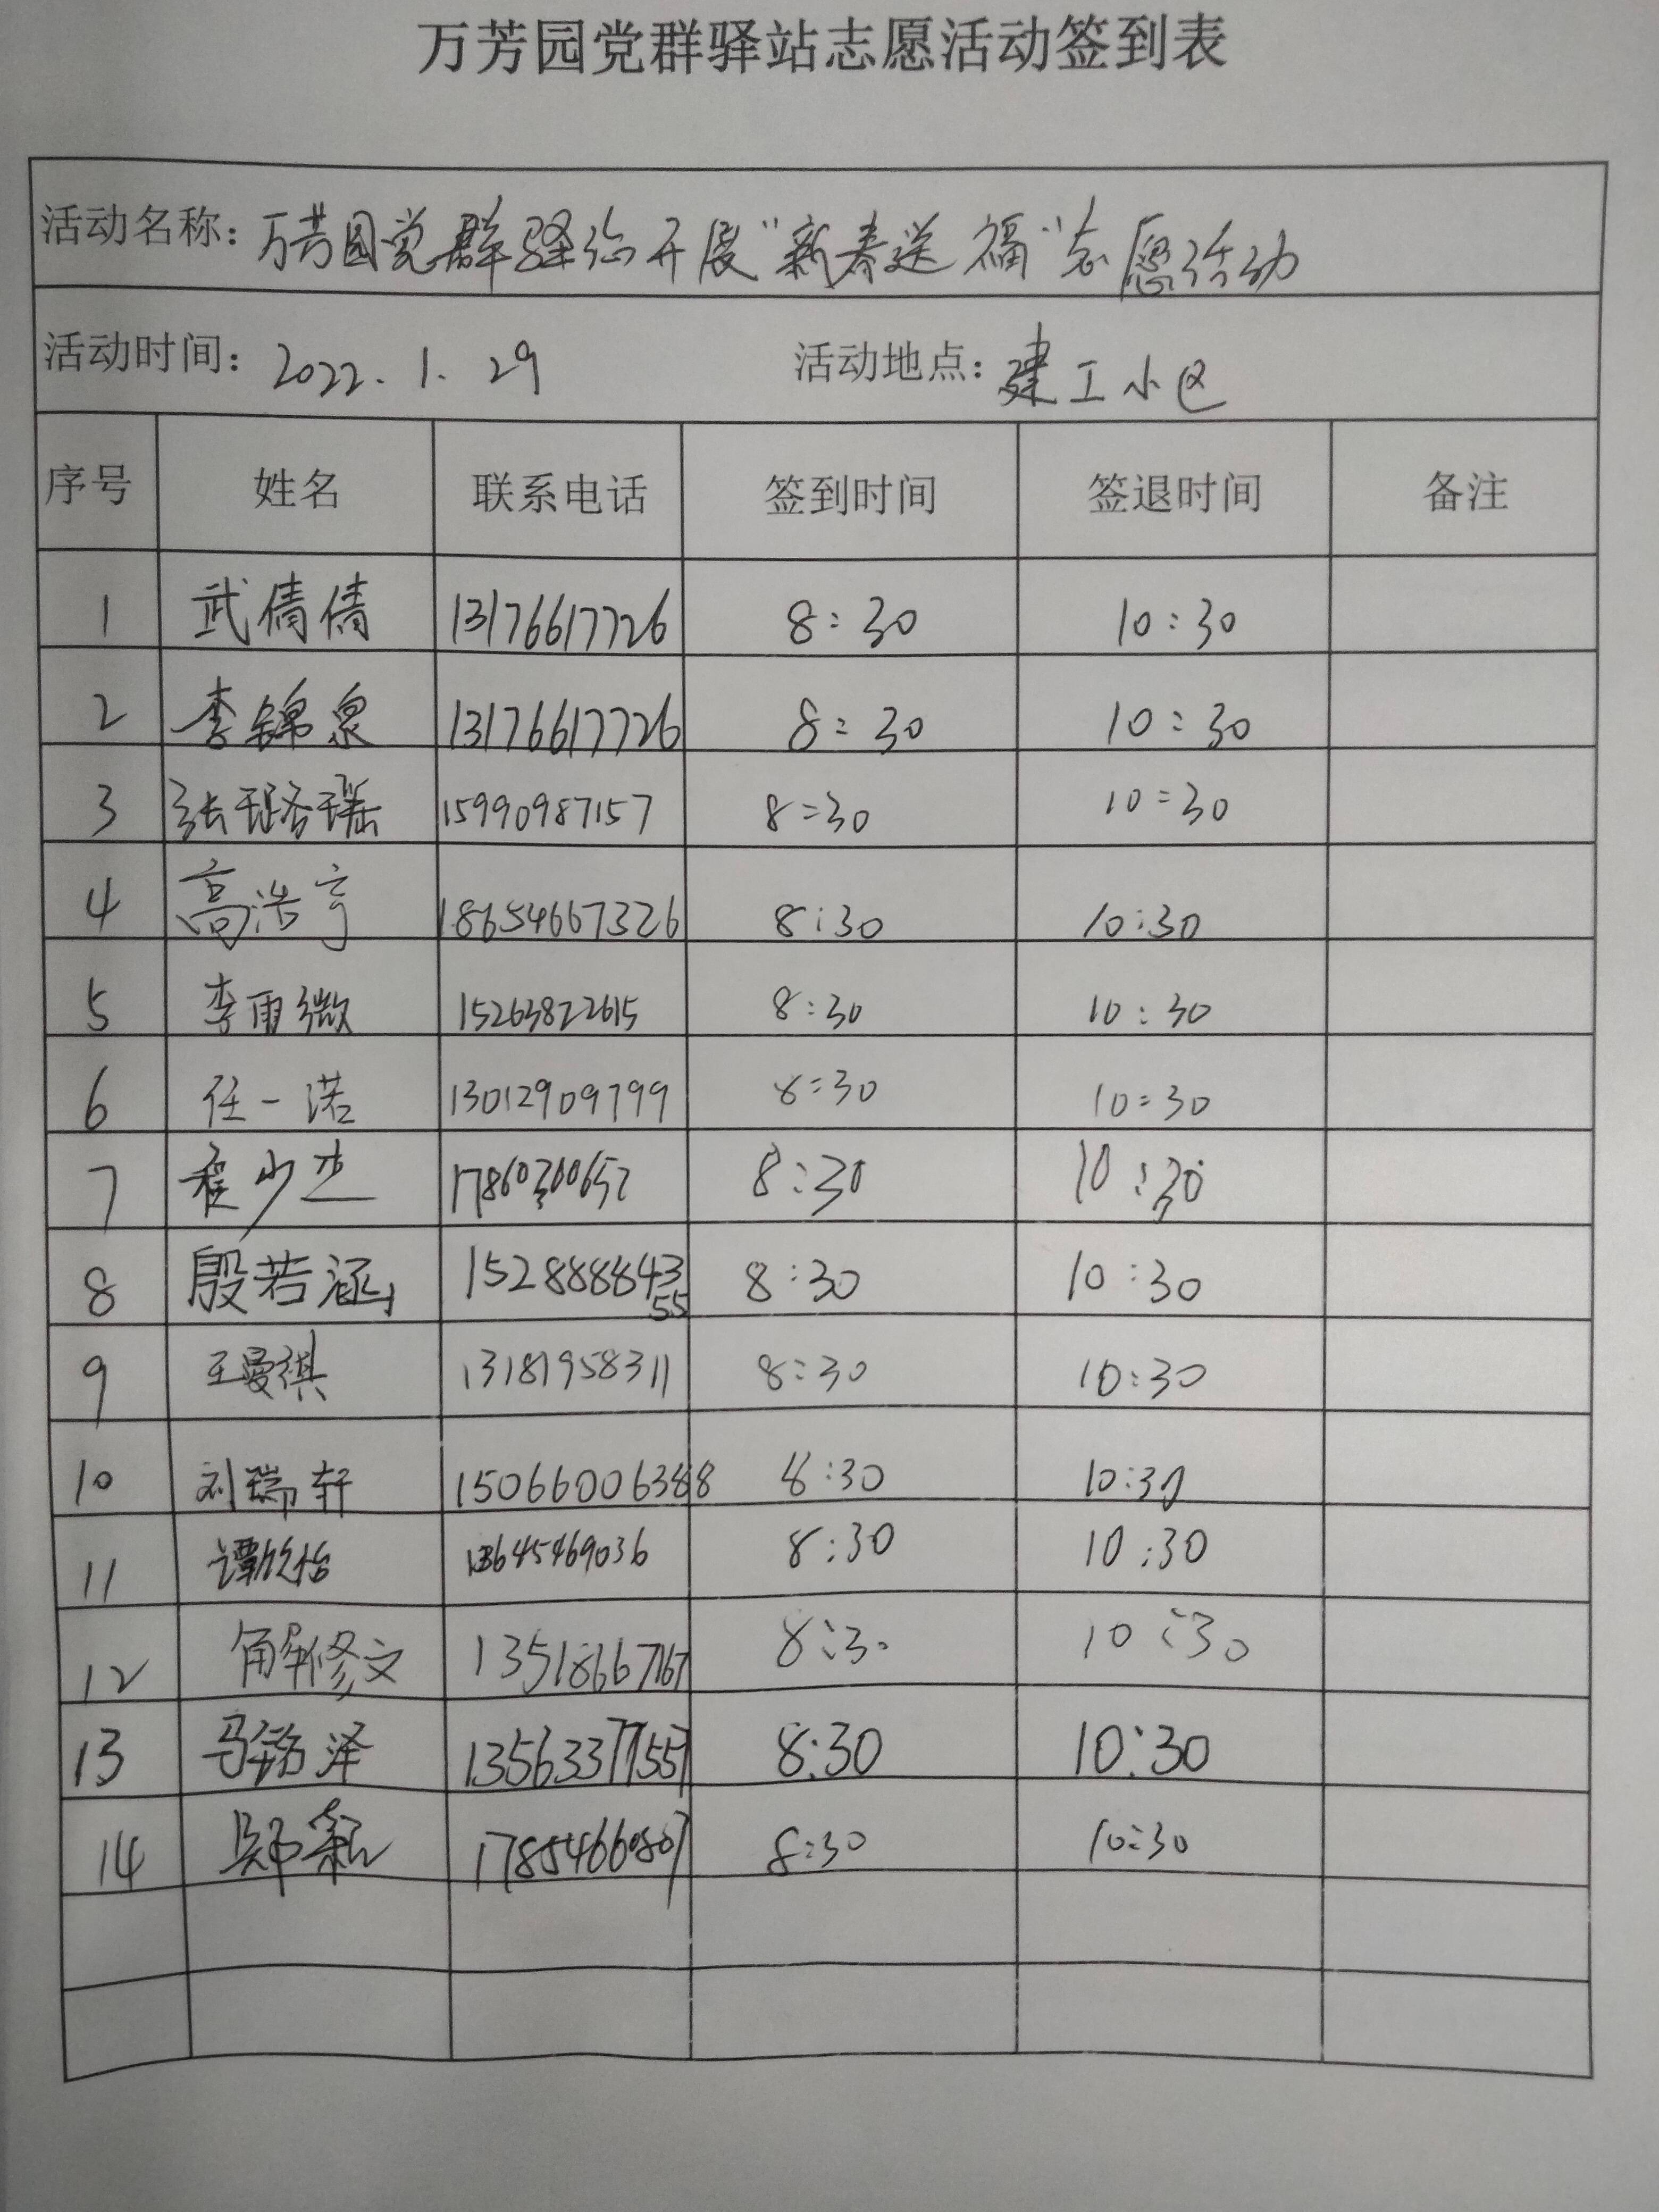 万芳园党群驿站志愿活动签到表
活动名称：万芳园党群驿站开展“新春送福”志愿活动
活动时间：2022.1.29 活动地点：建工小区
序号 姓名 联系电话 签到时间 签退时间 备注
1 武倩倩 13176617726 8:30 10:30
2 李锦泉 13176617726 8:30 10:30
3 张珞瑶 15990987157 8:30 10:30
4 高浩宁 18654667326 8:30 10:30
5 李雨微 15263822615 8:30 10:30
6 任一诺 13012909799 8:30 10:30
7 程少杰 8:30 10:30
8 殷若涵 15288884355 8:30 10:30
9 王曼祺 13181958311 8:30 10:30
10 刘瑞轩 15066006388 8:30 10:30
11 谭欣怡 13645469036 8:30 10:30
12 解修文 13518667167 8:30 10:30
13 马铭泽 13563377557 8:30 10:30
14 17854660807 8:30 10:30